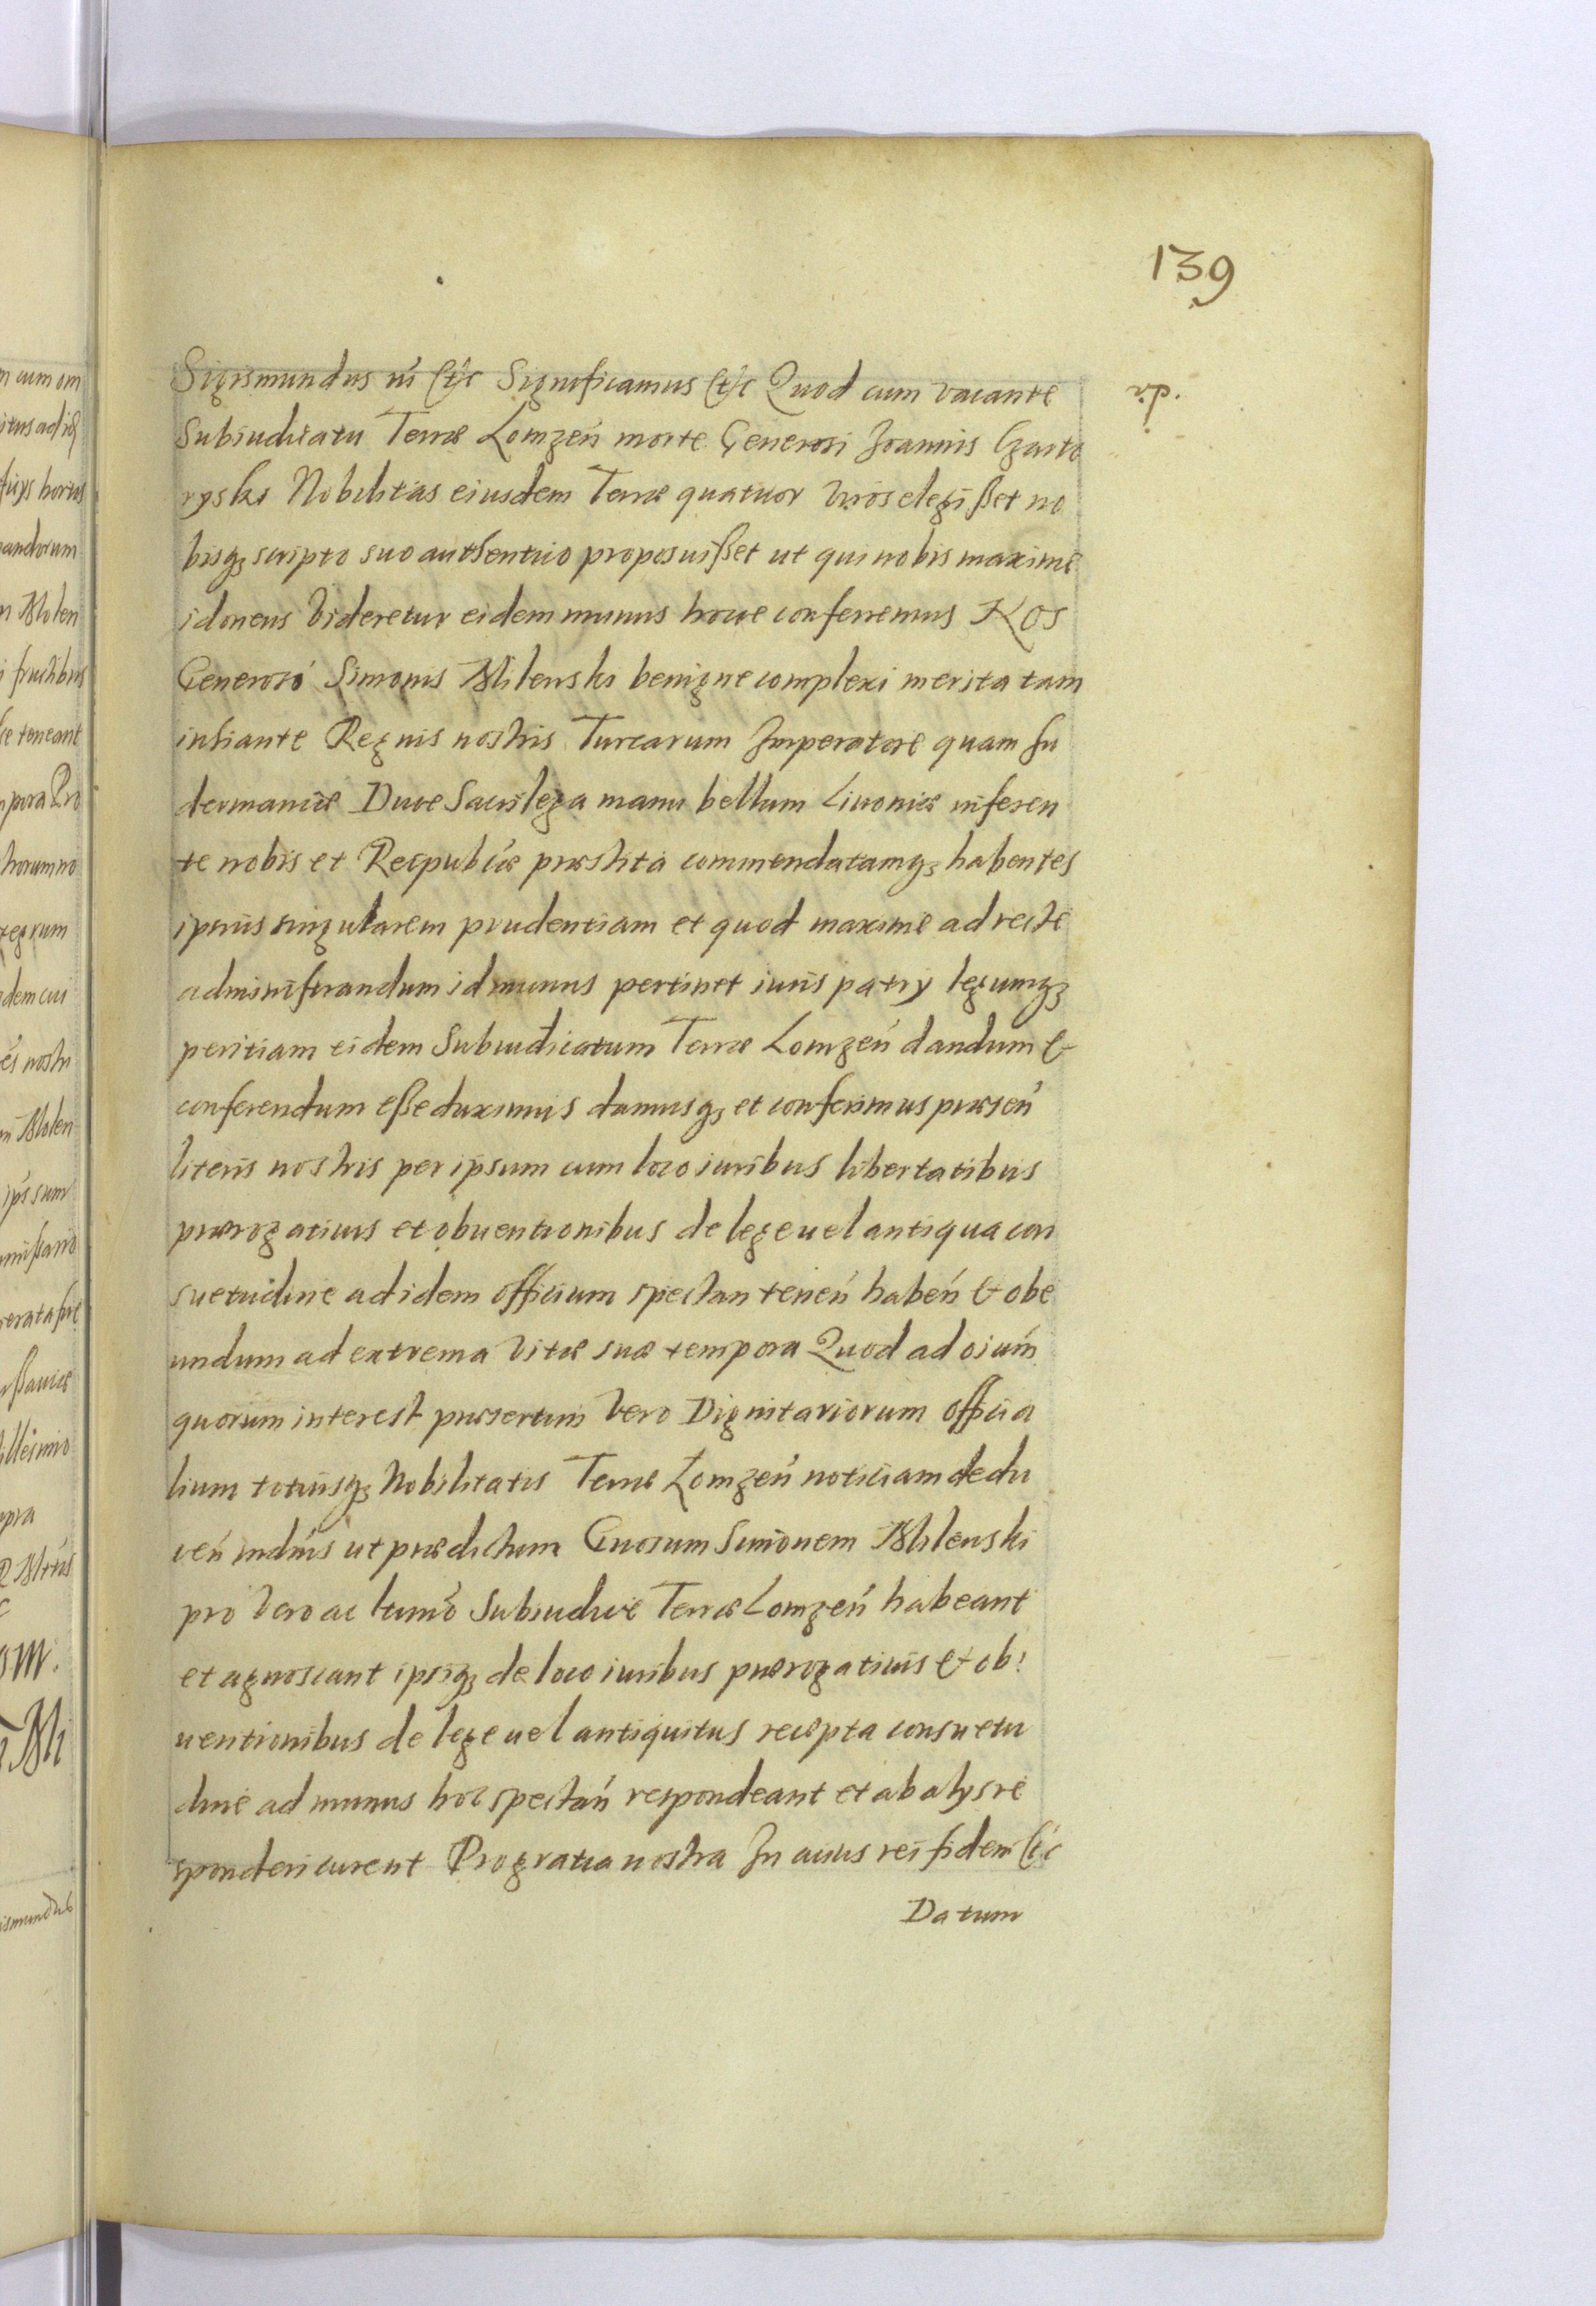 139
Sigismundus iii etc Significamus etc Quod cum vacante
Subiudicatu Terræ Lomzeń morte Generosi Joannis Czarto
ryski Nobilitas eiusdem Terræ quatuor viros elegißet no
bisqȝ scripto suo authentico proposuißet ut qui nobis maxime
idoneus videretur eidem munus hocce conferremus Nos
Generosi Simonis Milenski benigne complexi merita tam
inhiante Regnis nostris Turcarum Imperatore quam Su
dermaniæ Duce Sacrilega manu bellum Livoniæ inferen
te nobis et Reipublicæ præstita commendatamqȝ habentes
ipsius singularem prudentiam et quod maxime ad recte
administrandum id munus pertinet iuris patrij legumqȝ
peritiam eidem Subiudicatum Terræ Lomzeń dandum et
conferendum eße duximus damusqȝ et conferimus præseń
literis nostris per ipsum cum loco iuribus libertatibus
prærogatiuis et obuentionibus de lege uel antiqua con
suetudine ad idem officium spectan teneń habeń et obe
undum ad extrema vitæ suæ tempora Quod ad oīum
quorum interest præsertim vero Dignitariorum officia
lium totiusqȝ Nobilitatis Terræ Lomzeń noticiam dedu
ceń ut prædictum Gnosum Simonem Milenski
pro vero ac Subiudice Terræ Lomzeń habeant
et agnoscant ipsiqȝ de loco iuribus prærogatiuis et ob
uentionibus de lege uel antiquitus recepta consuetu
dine ad munus hoc spectań respondeant et ab alys re
sponderi curent Pro gratia nostra In cuius rei fidem etc
Datum